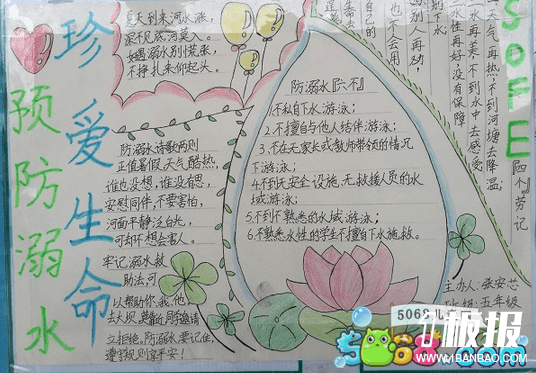 珍爱生命
预防溺水
夏天到来河水涨,
深不见底河莫入。
如遇溺水别慌张,
不挣扎来仰起头。
防溺水诗歌两则
正值暑假,天气酷热,
谁也没想,谁没有思,
安慰同伴,不要害怕,
河面平静泛白光,
可却不想会害人。
牢记溺水救
助法,可
以帮助你、我、他。
去大坝
立拒绝。防溺水要记住,
遵守规则享平安!
防溺水『六不』
1.不私自下水游泳;
2.不擅自与他人结伴游泳;
3.不在无家长或教师带领的情况
下游泳;
4.不到无安全设施、无救援人员的水
域游泳;
5.不到不熟悉的水域游泳;
6.不熟悉水性的学生不擅自下水施救。
SOFE
『四个』劳记
天气再热,不到河塘去降温,
水再美,不到水中去感受
水性再好,没有保障
别下水;
别人再劝,
也不会用
自己的
主办人:张安芯
班级:五年级
5068儿
板报
5068.com
WWW.1BANBAO.COM